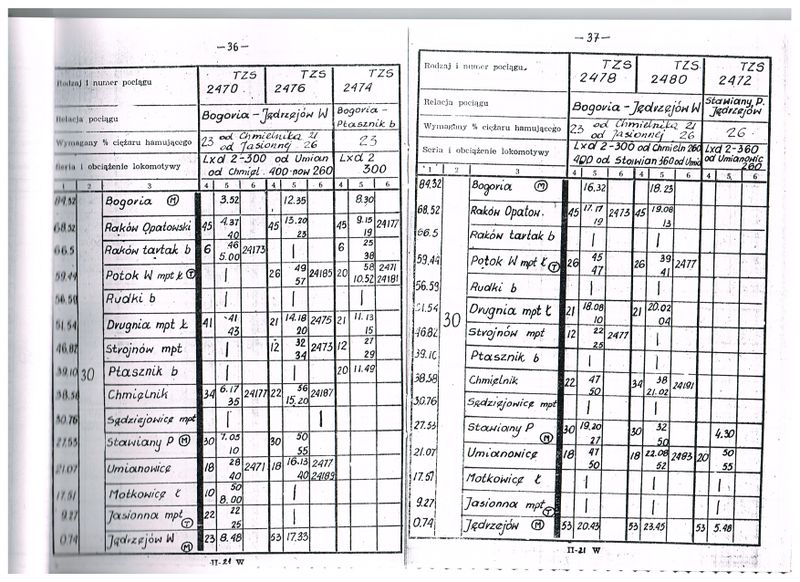 — 36 —
Rodzaj i numer pociągu TZS 2470 TZS 2476 TZS 2474
Relacja pociągu Bogoria - Jędrzejów W Bogoria - Ptasznik b
Wymagany % ciężaru hamującego 23 od Chmielnika 21 od Jasionnej 26 23
Seria i obciążenie lokomotywy Lxd 2-300 od Umian od Chmiel. 400 now 260 Lxd 2 300
1 2 3 4 5 6 4 5 6 4 5 6
84.52 Bogoria (M) 3.52 12.35 8.30
68.52 Raków Opatowski 45 4.37 40 45 13.20 25 45 9.15 19 24177
66.5 Raków tartak b 6 46 5.00 24173 | 6 25 38
59.44 Potok W mpt ł (T) | 26 49 57 24185 20 58 10.52 2471 24181
56.59 Rudki b | | |
51.54 Drugnia mpt ł 41 41 43 21 14.18 20 2475 21 11.13 15
46.82 Strojnów mpt | 12 32 34 2473 12 27 29
39.10 30 Ptasznik b | | 20 11.49
38.58 Chmielnik 34 6.17 35 24177 22 56 15.20 24187
30.76 Sędziejowice mpt | |
27.53 Stawiany P (M) 30 7.05 10 30 50 55
21.07 Umianowice 18 28 40 2471 18 16.13 40 2477 24189
17.51 Motkowice ł 10 50 8.00 |
9.27 Jasionna mpt (T) 22 22 25 |
0.74 Jędrzejów W (M) 23 8.48 53 17.33
II-21 W
— 37 —
Rodzaj i numer pociągu. TZS 2478 TZS 2480 TZS 2472
Relacja pociągu Bogoria - Jędrzejów W Stawiany P. Jędrzejów
Wymagany % ciężaru hamującego 23 od Chmielnika 21 od Jasionnej 26 26
Seria i obciążenie lokomotywy Lxd 2-300 od Chmieln 260 400 od Stawian 360 od Umia Lxd 2-360 od Umianowic 260
1 2 3 4 5 6 4 5 6 4 5 6
84.32 Bogoria (M) 16.32 18.23
68.52 Raków Opatow. 45 17.17 19 2473 45 19.08 13
66.5 Raków tartak b | |
59.44 Potok W mpt ł (T) 26 45 47 26 39 41 2477
56.59 Rudki b | |
51.54 Drugnia mpt ł 21 18.08 10 21 20.02 04
46.82 30 Strojnów mpt 12 22 25 2477 |
39.10 Ptasznik b | |
38.58 Chmielnik 22 47 50 34 38 21.02 24191
30.76 Sędziejowice mpt | |
27.53 Stawiany P (M) 30 19.20 27 30 32 50 4.30
21.07 Umianowice 18 47 50 18 22.08 52 2483 20 50 55
17.51 Motkowice ł | | |
9.27 Jasionna mpt (T) | | |
0.74 Jędrzejów (M) 53 20.43 53 23.45 53 5.48
II-21 W